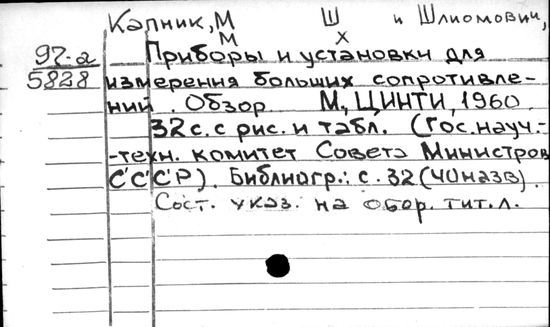 Капник, М Ш и Шлиомович,
М Х
97-а Приборы и установки для
5828 измерения больших сопротивле-
ний. Обзор М, ЦИНТИ, 1960.
32 с. с рис. и табл. (Гос. науч.-
-техн. комитет Совета Министров
СССР). Библиогр.: с. 32 (40 назв).
Сост. указ. на обор. тит. л.